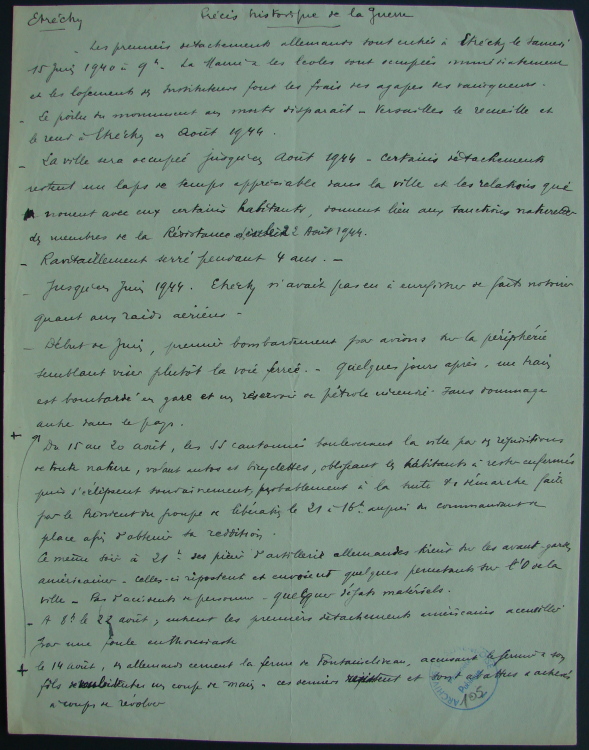 Etréchy
Précis historique de la Guerre
- Les premiers détachements allemands sont entrés à Etréchy le samedi
15 Juin 1940 à 9h. La Mairie les écoles sont occupées immédiatement
et les logements des Instituteurs font les frais des agapes des vainqueurs.
- Le poilu du monument aux morts disparait - Versailles le recueille et
le rend à Etréchy en Août 1944.
- La ville sera occupée jusqu'en Août 1944 - Certains détachements
restent un laps de temps appréciable dans la ville et les relations que
nouent avec eux certains habitants, donnent lieu aux sanctions
des membres de la Résistance le 22 Août 1944.
- Ravitaillement serré pendant 4 ans. -
- Jusqu'en Juin 1944. Etréchy n'avait pas eu à enregistrer de faits notoires
quant aux raids aériens -
- Début de Juin, premier bombardement par avions sur la périphérie
semblant viser plutôt la voie ferrée. - Quelques jours après, un train
est bombardé en gare et un réservoir de pétrole incendié. Sans dommage
autre dans le pays.
+ Du 15 au 20 août, les SS cantonnés bouleversent la ville par des réquisitions
de toute nature, volant autos et bicyclettes, obligeant les habitants à rester enfermés
puis s'éclipsent soudainement, probablement à la suite de démarche faite
par le Président du groupe de libération le 21 à 16h. auprès du commandant de
place afin d'obtenir sa reddition.
Ce même soir à 21h. des pièces d'artillerie allemandes tirent sur les avant-gardes
américaines - celles-ci ripostent et envoient quelques percutants sur l'O de la
ville - Pas d'accidents de personne - quelques dégâts matériels.
- A 8h. le 22 août, entrent les premiers détachements américains accueillis
par une foule enthousiaste
+ le 14 août, les allemands cernent la ferme de Fontaineliveau, accusant le fermier et son
fils un coup de main - ces derniers et sont abattus et achevés
à coups de révolver
ARCHIV
105